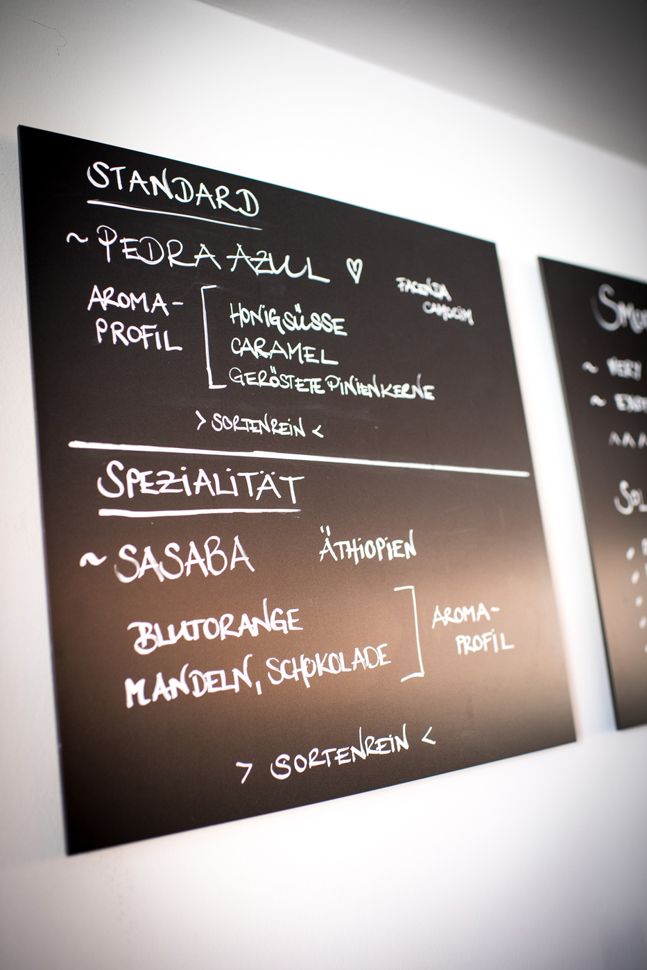 STANDARD
~ PEDRA AZUL ♡
FAZENDA
CAMOCIM
AROMA-
PROFIL
HONIGSÜSSE
CARAMEL
GERÖSTETE PINIENKERNE
> SORTENREIN <
SPEZIALITÄT
~ SASABA ÄTHIOPIEN
BLUTORANGE
MANDELN, SCHOKOLADE
AROMA-
PROFIL
> SORTENREIN <
~ VERY